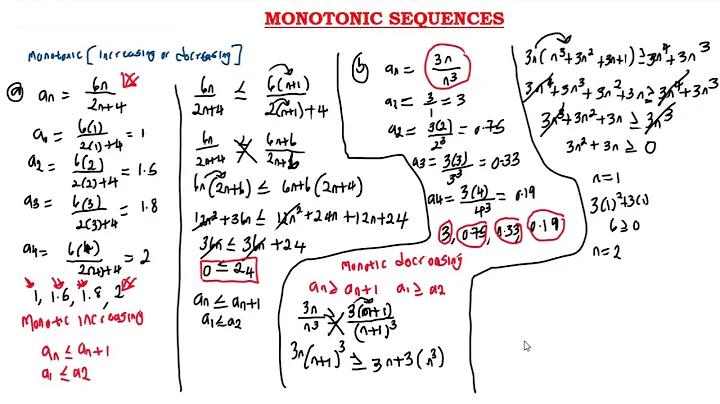 MONOTONIC SEQUENCES
Monotonic [increasing or decreasing]
(a) an = 6n / 2n+4
a1 = 6(1) / 2(1)+4 = 1
a2 = 6(2) / 2(2)+4 = 1.5
a3 = 6(3) / 2(3)+4 = 1.8
a4 = 6(4) / 2(4)+4 = 2
1, 1.5, 1.8, 2
Monotic increasing
an ≤ an+1
a1 ≤ a2
6n / 2n+4 ≤ 6(n+1) / 2(n+1)+4
6n / 2n+4 ≤ 6n+6 / 2n+6
6n(2n+6) ≤ 6n+6(2n+4)
12n² + 36n ≤ 12n² + 24n + 12n + 24
36n ≤ 36n + 24
0 ≤ 24
an ≤ an+1
a1 ≤ a2
(b) an = 3n / n³
a1 = 3/1 = 3
a2 = 3(2) / 2³ = 0.75
a3 = 3(3) / 3³ = 0.33
a4 = 3(4) / 4³ = 0.19
3, 0.75, 0.33, 0.19
Monotic decreasing
an ≥ an+1 a1 ≥ a2
3n / n³ ≥ 3(n+1) / (n+1)³
3n(n+1)³ ≥ 3n+3(n³)
3n(n³+3n²+3n+1) ≥ 3n⁴+3n³
3n⁴+9n³+9n²+3n ≥ 3n⁴+3n³
3n² + 3n ≥ 0
n = 1
3(1)²+3(1)
6 ≥ 0
n = 2